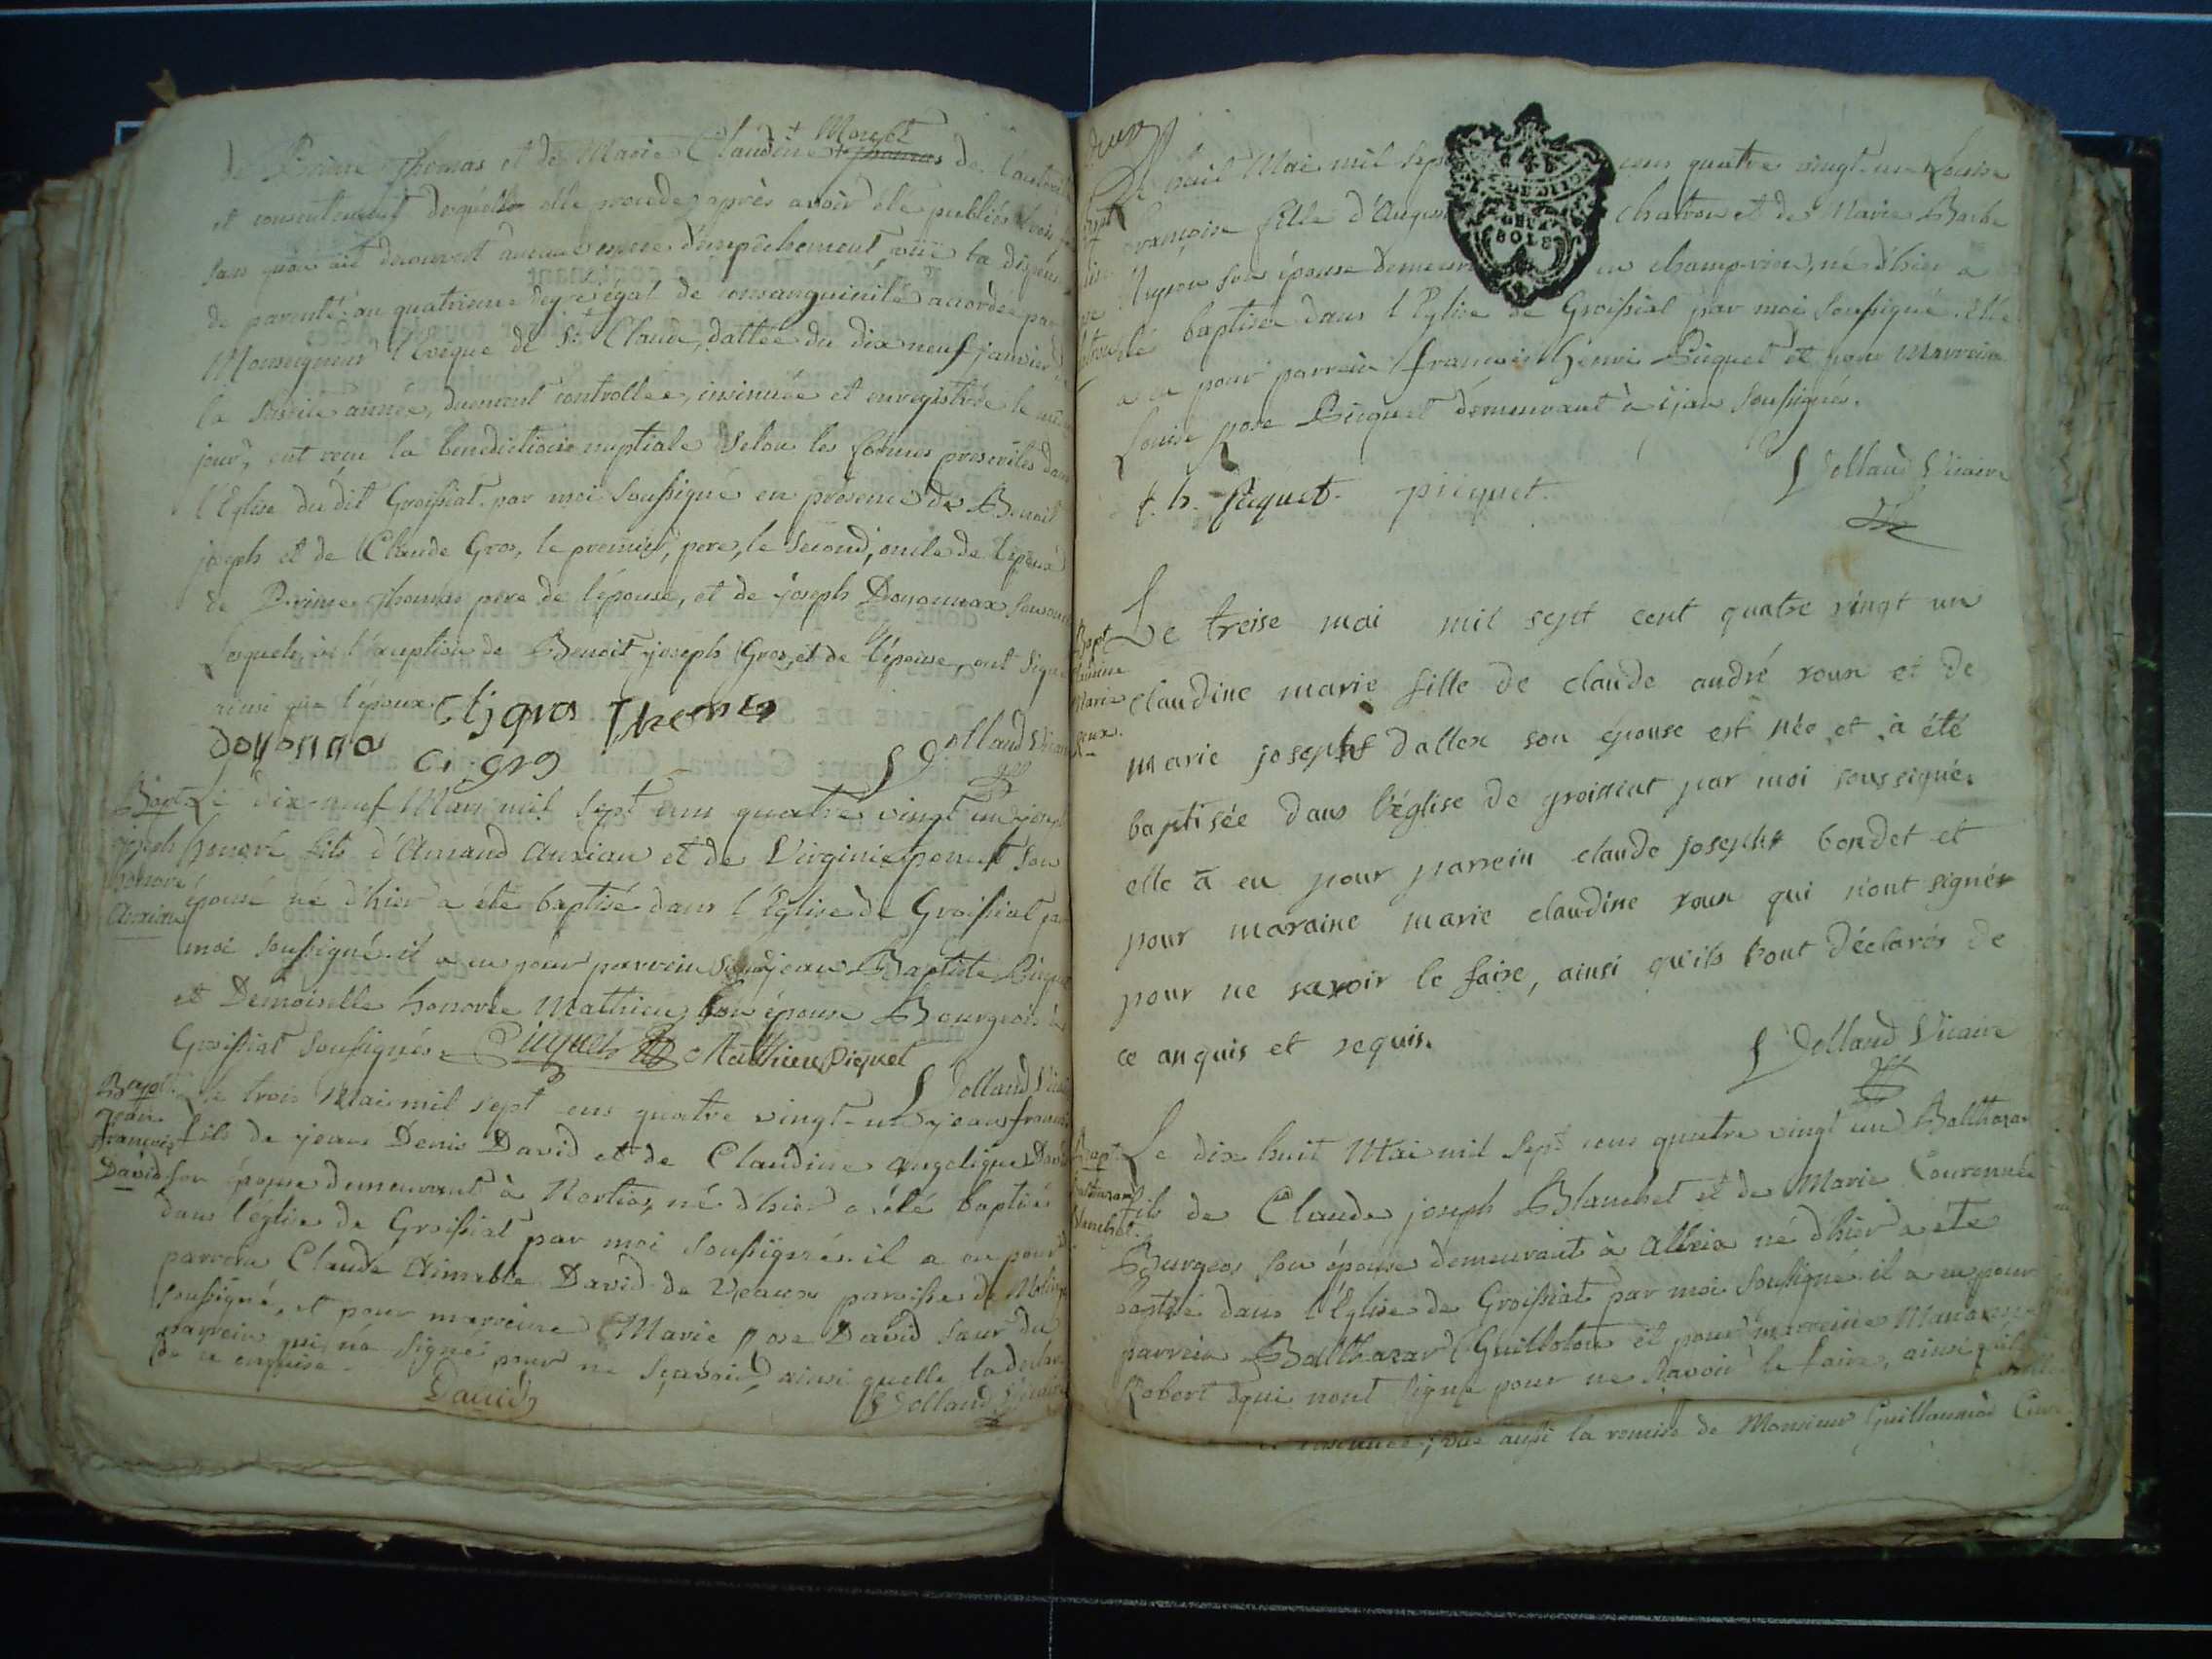 + Moyret
de Prime Thomas et de Marie Claudine + Thomas de l'autorité
et consentement desquels elle procède, après avoir été publiés trois
sans qu'on ait decouvert aucune espece d'empêchement, vüe la dispense
de parenté au quatrieme degré égal de consanguinité accordée par
Monseigneur l'Eveque de St Claude, dattée du dix neuf janvier
la susdite année, duement controllée, insinuée et enregistrée le même
jour, ont reçu la benediction nuptiale selon les formes prescrites dans
l'Eglise du dit Groissiat par moi soussigné en présence de Benoit
joseph et de Claude Gros, le premier, pere, le second, oncle de l'epoux
de Prime Thomas pere de l'épouse, et de joseph Donomax
lesquels, à l'exception de Benoit joseph Gros, et de l'épouse, ont signé
ainsi que l'époux.
Cl j gros Thomas
donona Cl. gro
Dolland Vicaire
Bapt. joseph honoré Auxian
Le dix-neuf Mars mil sept cens quatre vingt un joseph
honoré fils d'Amand Auxian et de Virginie ponart son
épouse né d'hier a été baptisé dans l'Eglise de Groissiat par
moi soussigné. il a eu pour parrein Sieur jean Baptiste Piquet
et Demoiselle honorée Mathieu son épouse Bourgeois à
Groissiat soussignés. Piquet Mathieu Piquet
Dolland Vicaire
Bapt. jean françois David
le trois Mai mil sept cens quatre vingt-un jean françois
fils de jean Denis David et de Claudine angelique David
son épouse demeurant à Nortias, né d'hier a été baptisé
dans l'église de Groissiat par moi soussigné. il a eu pour
parrein Claude Aimable David de Veaux paroisse de
soussigné, et pour marreine Marie Rose David sœur du
parrein qui n'a signé pour ne sçavoir, ainsi quelle la déclaré
de ce enquise.
David
Dolland Vicaire
Le huit Mai mil sept cens quatre vingt-un Louise
françoise fille d'August Chatron et de Marie Barbe
Nyson son épouse demeurant en champ-rion, né d'hier a
été baptisée dans l'Eglise de Groissiat par moi soussigné. Elle
a eu pour parrein françois henri Piquet et pour Marreine
Louise Rose Picquet demeurant à ijan soussignés.
f. h. Piquet. picquet.
Dolland Vicaire
Bapt Claudine Marie roux.
Le treise mai mil sept cent quatre vingt un
claudine marie fille de claude andré roux et de
marie josephe dallex son épouse est née et a été
baptisée dans l'église de groissiat par moi soussigné.
elle a eu pour parrein claude joseph bondet et
pour maraine marie claudine roux qui n'ont signés
pour ne savoir le faire, ainsi qu'ils l'ont déclarés de
ce anquis et requis.
Dolland Vicaire
Bapt. Balthazar Blanchet.
Le dix huit Mai mil sept cens quatre vingt un Balthazar
fils de Claude joseph Blanchet et de Marie Couronnée
Burgeos son épouse demeurant à Alleix né d'hier a été
baptisé dans l'Eglise de Groissiat par moi soussigné. il a eu pour
parrein Balthazar Guilloton et pour marreine
Robert qui n'ont signé pour ne savoir le faire, ainsi qu'ils
vue aussi la remise de Monsieur Guillaumod Curé